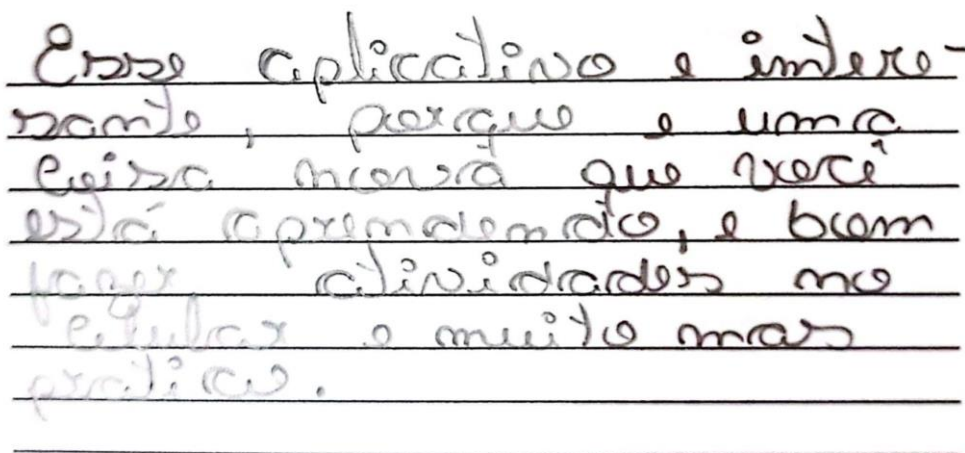 Esse aplicativo e intere-
sante, porque e uma
coisa nova que você
está aprendendo, e bom
fazer atividades no
celular e muito mas
pratico.